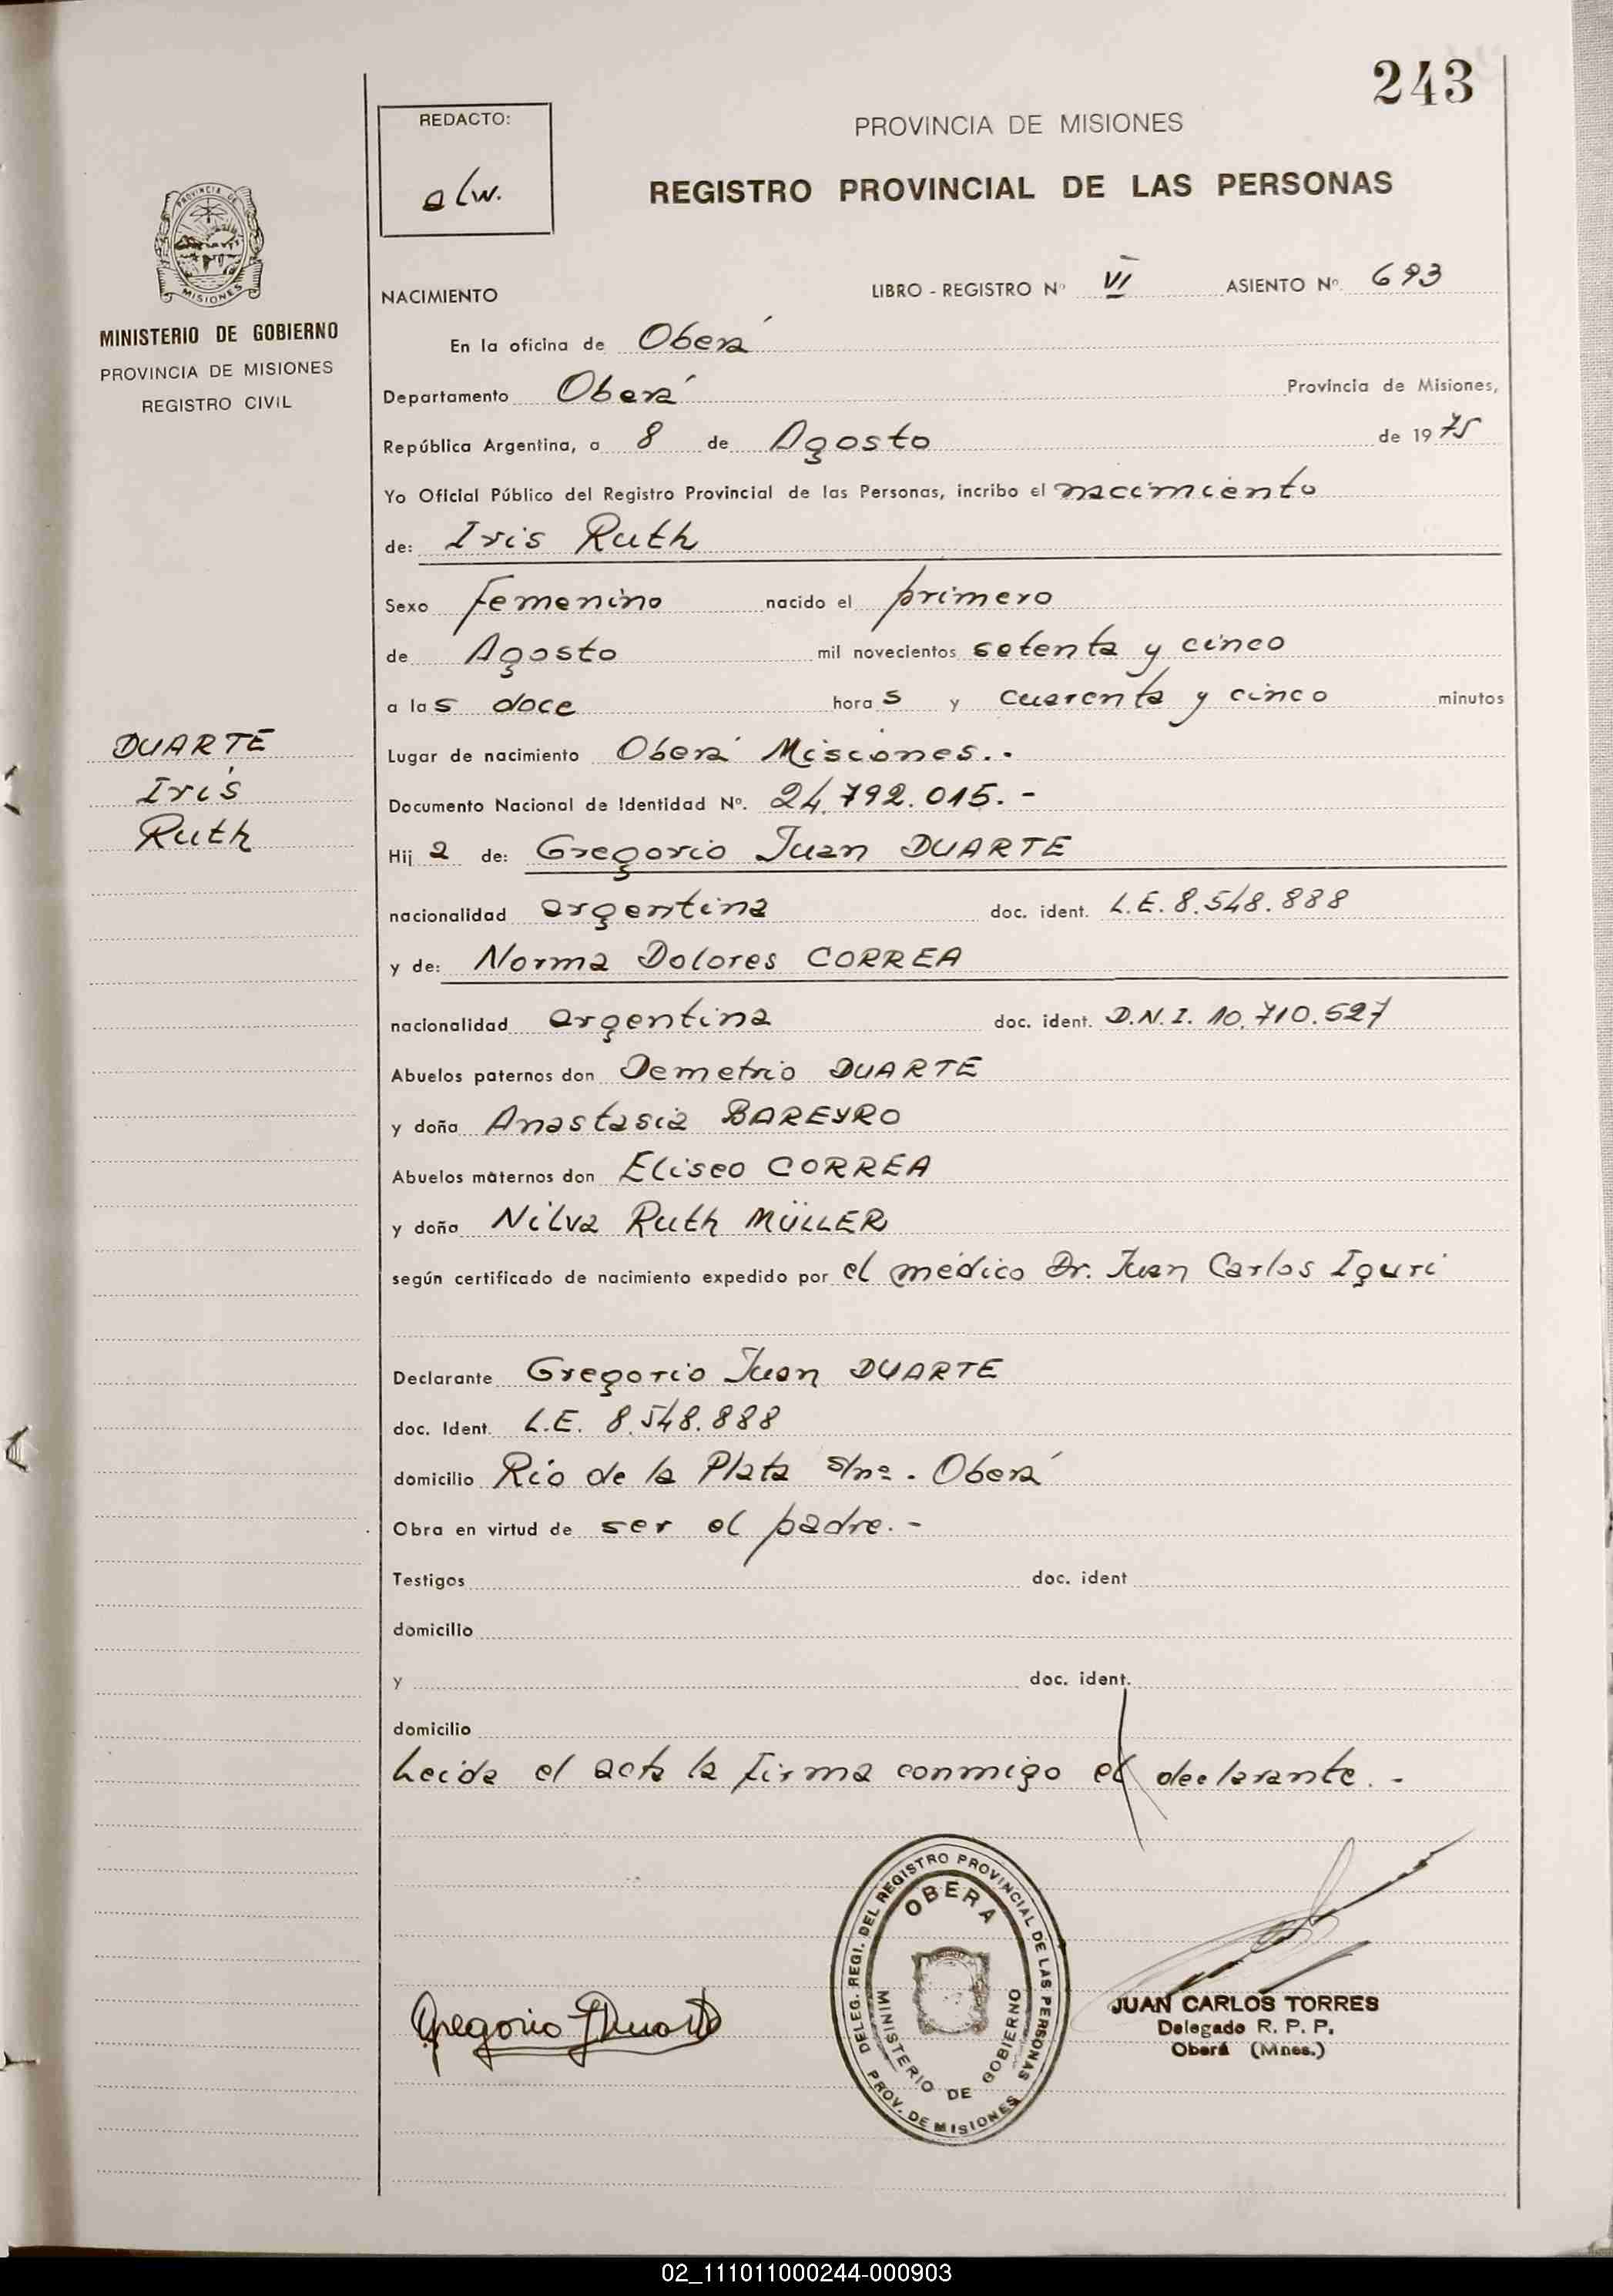 243
REDACTO:
alw.
PROVINCIA DE MISIONES
REGISTRO PROVINCIAL DE LAS PERSONAS
PROVINCIA DE
MISIONES
MINISTERIO DE GOBIERNO
PROVINCIA DE MISIONES
REGISTRO CIVIL
NACIMIENTO LIBRO - REGISTRO Nº VI ASIENTO Nº 693
En la oficina de Oberá
Departamento Oberá Provincia de Misiones,
República Argentina, a 8 de Agosto de 1975
Yo Oficial Público del Registro Provincial de las Personas, incribo el nacimiento
de: Iris Ruth
Sexo Femenino nacido el primero
de Agosto mil novecientos setenta y cinco
a las doce horas y cuarenta y cinco minutos
Lugar de nacimiento Oberá Misiones.-
Documento Nacional de Identidad Nº. 24.792.015.-
DUARTE
Iris
Ruth
Hija de: Gregorio Juan DUARTE
nacionalidad argentina doc. ident. L.E. 8.548.888
y de: Norma Dolores CORREA
nacionalidad argentina doc. ident. D.N.I. 10.710.527
Abuelos paternos don Demetrio DUARTE
y doña Anastasia BAREYRO
Abuelos maternos don Eliseo CORREA
y doña Nilva Ruth MÜLLER
según certificado de nacimiento expedido por el médico Dr. Juan Carlos Iguri
Declarante Gregorio Juan DUARTE
doc. Ident. L.E. 8.548.888
domicilio Río de la Plata s/nº. Oberá
Obra en virtud de ser el padre.-
Testigos doc. ident
domicilio
y doc. ident.
domicilio
Leida el acta la firma conmigo el declarante.-
Gregorio J Duarte
DELEG. REGI. DEL REGISTRO PROVINCIAL DE LAS PERSONAS
OBERA
MINISTERIO DE GOBIERNO
PROV. DE MISIONES
JUAN CARLOS TORRES
Delegado R. P. P.
Oberá (Mnes.)
02_111011000244-000903